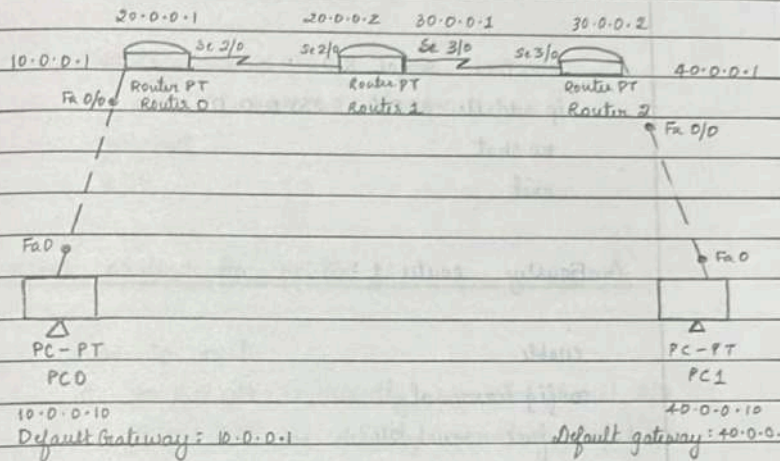 20.0.0.1 20.0.0.2 30.0.0.1 30.0.0.2
10.0.0.1 Se 2/0 Se 2/0 Se 3/0 Se 3/0 40.0.0.1
Router PT Router PT Router PT
Fa 0/0 Router 0 Router 1 Router 2
Fa 0/0
Fa0 Fa0
PC-PT PC-PT
PC0 PC1
10.0.0.10 40.0.0.10
Default Gateway: 10.0.0.1 Default gateway: 40.0.0.